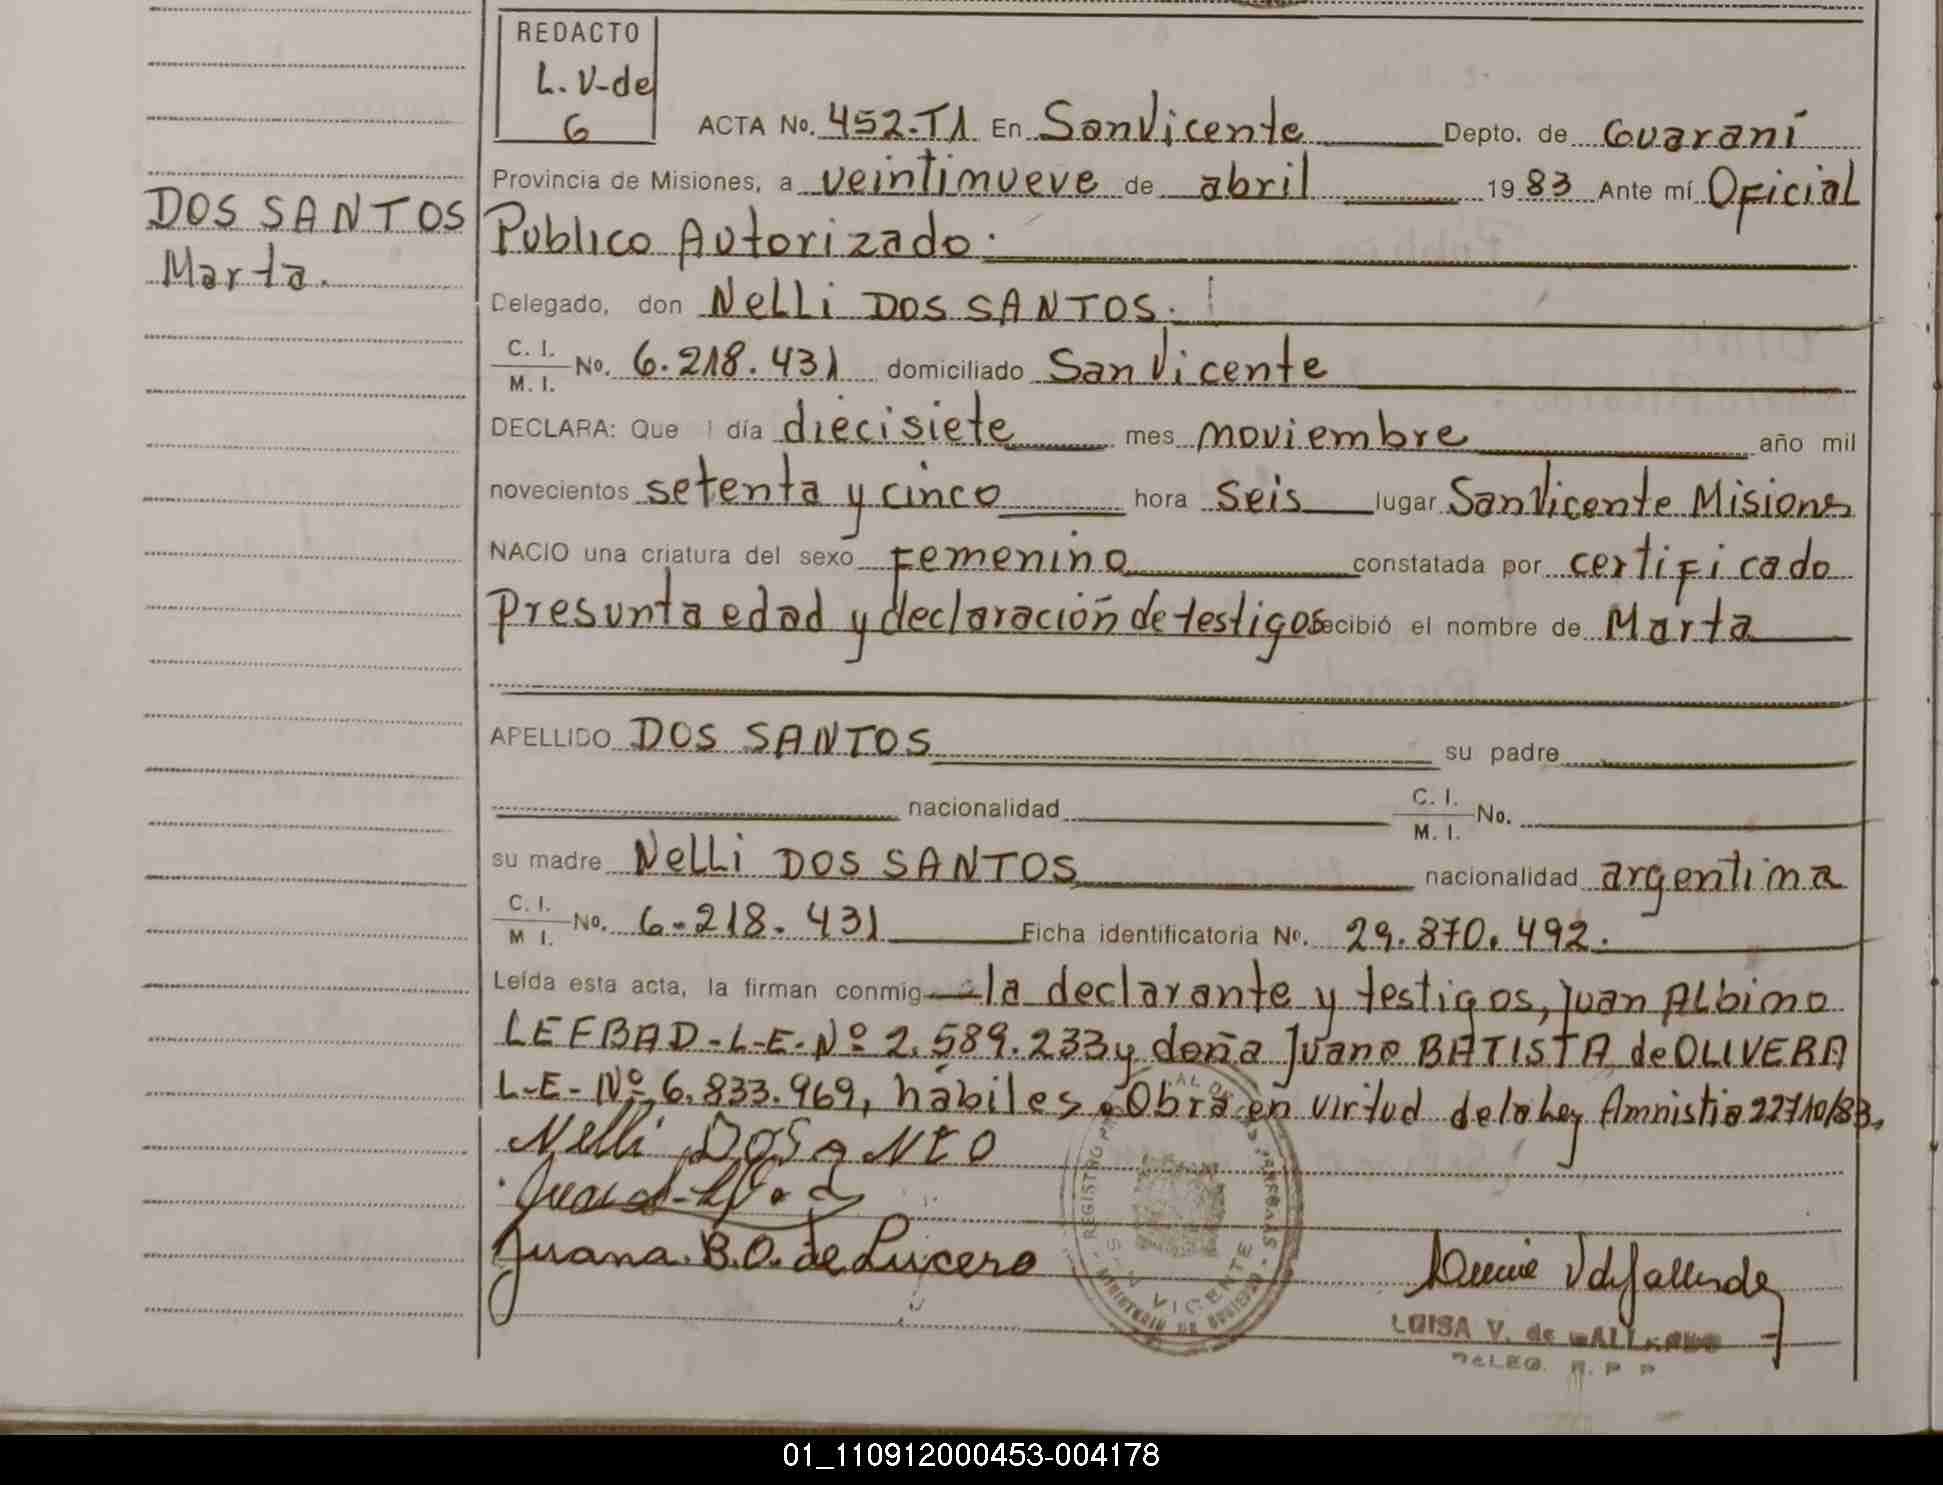 REDACTO
L. V-de
G
ACTA No. 452-T1 En San Vicente Depto. de Guaraní
Provincia de Misiones, a veintinueve de abril 1983 Ante mí Oficial
DOS SANTOS
Marta.
Publico Autorizado.
Delegado, don Nelli DOS SANTOS.
C. I. / M. I. No. 6.218.431 domiciliado San Vicente
DECLARA: Que l día diecisiete mes noviembre año mil
novecientos setenta y cinco hora seis lugar San Vicente Misiones
NACIO una criatura del sexo Femenino constatada por certificado
Presunta edad y declaración de testigos recibió el nombre de Marta
APELLIDO DOS SANTOS su padre
nacionalidad C. I. / M. I. No.
su madre Nelli DOS SANTOS nacionalidad argentina
C. I. / M I. No. 6-218-431 Ficha identificatoria No. 29.870.492.
Leída esta acta, la firman conmig la declarante y testigos, Juan Albino
LEFBAD-L-E-Nº 2.589.233 y doña Juana BATISTA de OLIVERA
L-E-Nº 6.833.969, hábiles. Obra en virtud de la Ley Amnistia 22710/83.
Nelli DOSANTO
Juana B.O. de Lucero
REGISTRO
S. VICENTE
LUISA V. de GALLARDO
DELEG. R. P P
01_110912000453-004178